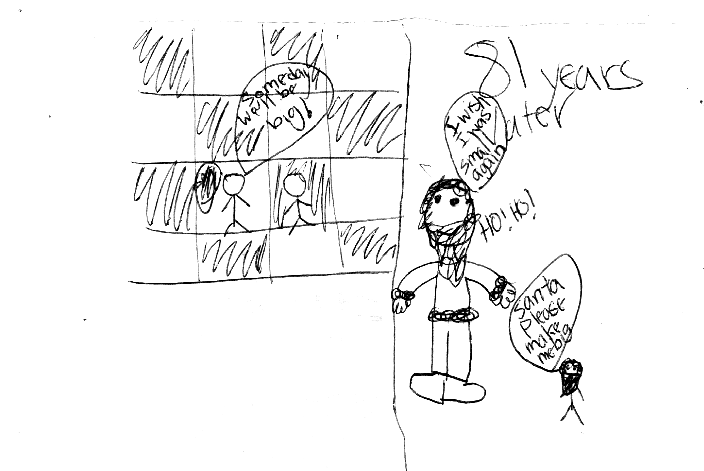 Someday
We'll be
big!
81 years
later
I wish
I was
small
again
HO! HO!
Santa
please
make
me big